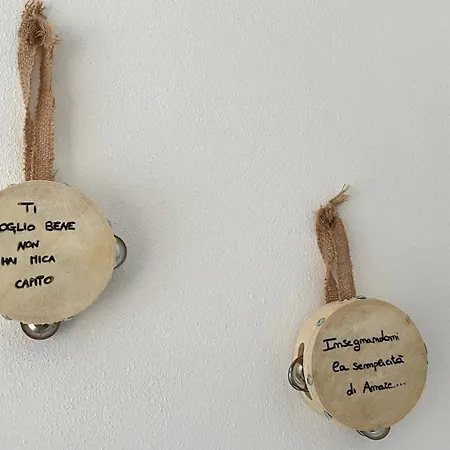 TI
OGLIO BENE
NON
HAI MICA
CAPITO
Insegnandomi
la semplicità
di Amare...